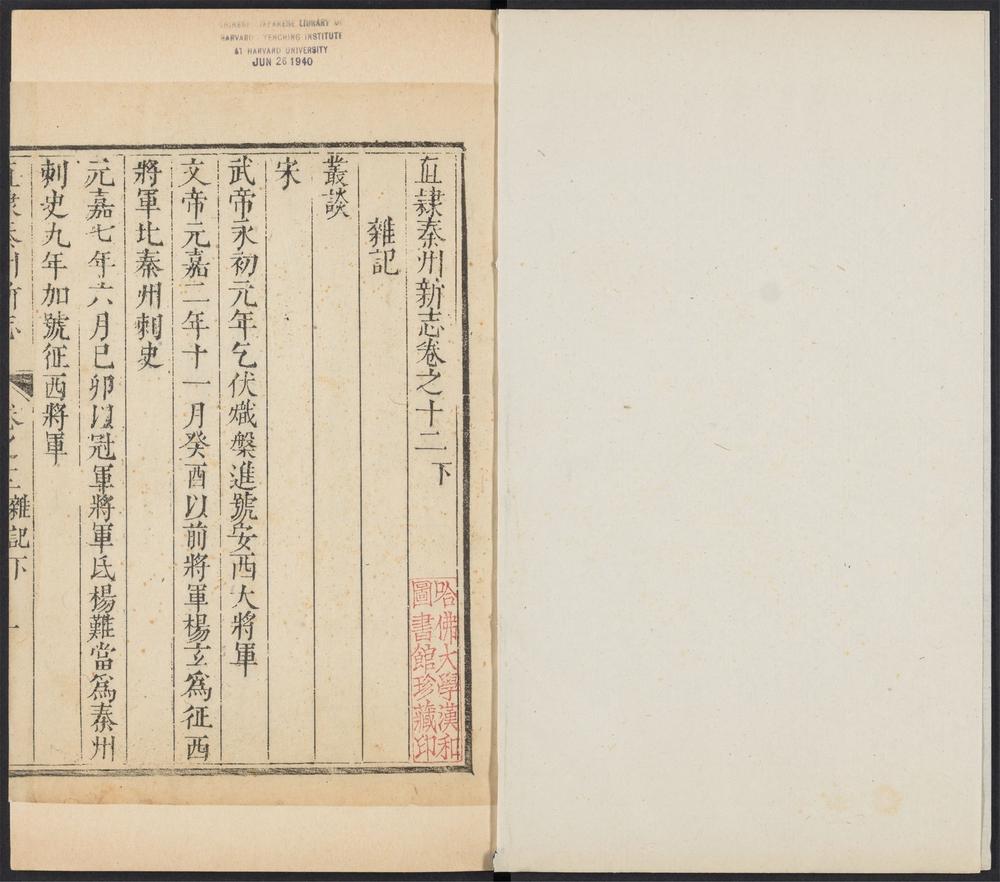 CHINESE JAPANESE LIBRARY OF
HARVARD YENCHING INSTITUTE
AT HARVARD UNIVERSITY
JUN 26 1940
直隸秦州新志卷之十二 下
雜記
叢談
宋
武帝永初元年乞伏熾槃進號安西大將軍
文帝元嘉二年十一月癸酉以前將軍楊玄爲征西
將軍北秦州刺史
元嘉七年六月己卯以冠軍將軍氐楊難當爲秦州
刺史九年加號征西將軍
直隸秦州新志
卷之十二雜記下
一
哈佛大學漢和
圖書館珍藏印